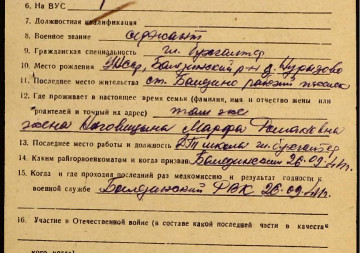 6. На ВУС
7. Должностная квалификация
8. Военное звание сержант
9. Гражданская специальность гл. бухгалтер
10. Место рождения УАССР, Балезинский р-н д.
11. Последнее место жительства ст. Балезино
12. Где проживает в настоящее время семья (фамилия, имя и отчество жены или
родителей и точный их адрес) там же
жена Марфа
13. Последнее место работы и должность школа гл. бухгалтер
14. Каким райгорвоенкоматом и когда призван Балезинским 26.09.41г.
15. Когда и где проходил последний раз медкомиссию и результат годности к
военной службе Балезинский РВК 26.09.41г.
16. Участие в Отечественной войне (в составе какой последней части в качестве
кого, когда)